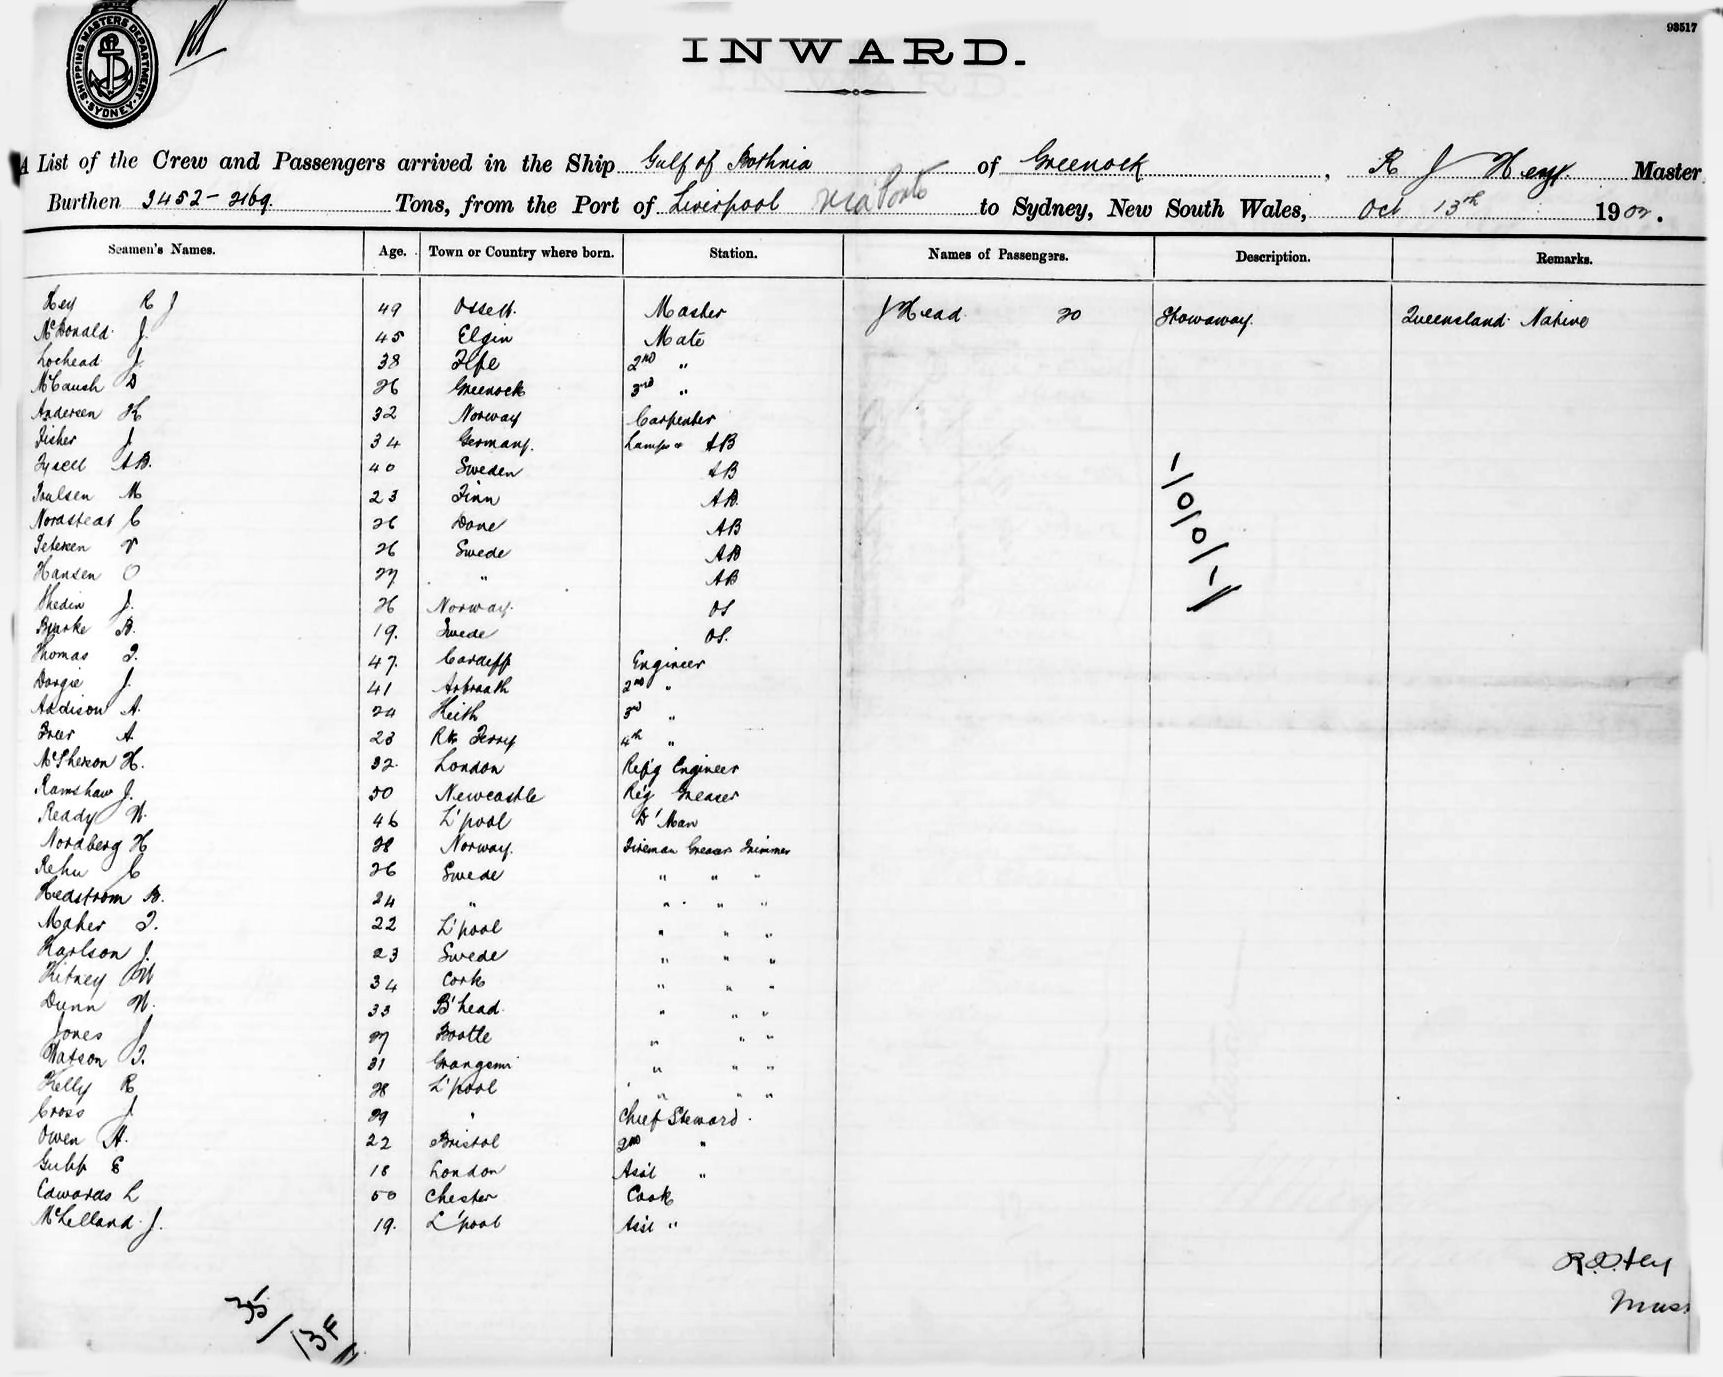 93517
SHIPPING MASTERS DEPARTMENT SYDNEY
INWARD.
A List of the Crew and Passengers arrived in the Ship Gulf of Bothnia of Greenock, R J Hey. Master
Burthen 3452-2169 Tons, from the Port of Liverpool via Ports to Sydney, New South Wales, Oct 13th 1902.
Seamen's Names. Age. Town or Country where born. Station. Names of Passengers. Description. Remarks.
Hey R J 49 Ossett. Master J Head 20 Stowaway. Queensland Native
McDonald J. 45 Elgin Mate
Lochead J. 38 Fife 2nd "
McCaush D 26 Greenock 3rd "
Andersen K 32 Norway Carpenter
Fisher J. 34 Germany. Lamps & AB
Tysell AB. 40 Sweden AB
Poulsen M 23 Finn AB.
C 26 Dane AB
Petersen 26 Swede AB
Hansen O 27 " AB
Shedin J. 26 Norway. OS
Bjurke B. 19. Swede OS.
Thomas T. 47. Cardiff Engineer
Dargie J. 41 Arbroath 2nd "
Addison A. 24 Keith 3rd "
Freer A 23 Rk Ferry 4th "
McPherson H. 32 London Refg Engineer
Ramshaw J. 50 Newcastle Refg Greaser
Ready W. 46 L'pool D'Man
Nordberg H 28 Norway. Fireman Greaser Trimmer
Rehn C 26 Swede " " "
Hedstrom B. 24 " " " "
Maher T. 22 L'pool " " "
Karlson J. 23 Swede " " "
Hitney 34 Cork " " "
Dunn W. 33 B'head " " "
Jones J 27 Bootle " " "
Watson T. 31 " " "
Kelly R 28 L'pool " " "
Cross J. 29 " Chief Steward.
Owen H. 22 Bristol 2nd "
Gubb E 18 London Asst "
Edwards L 50 Chester Cook
McLelland J. 19. L'pool Asst "
-/0/0/-/
35/
13F//
R.J. Hey